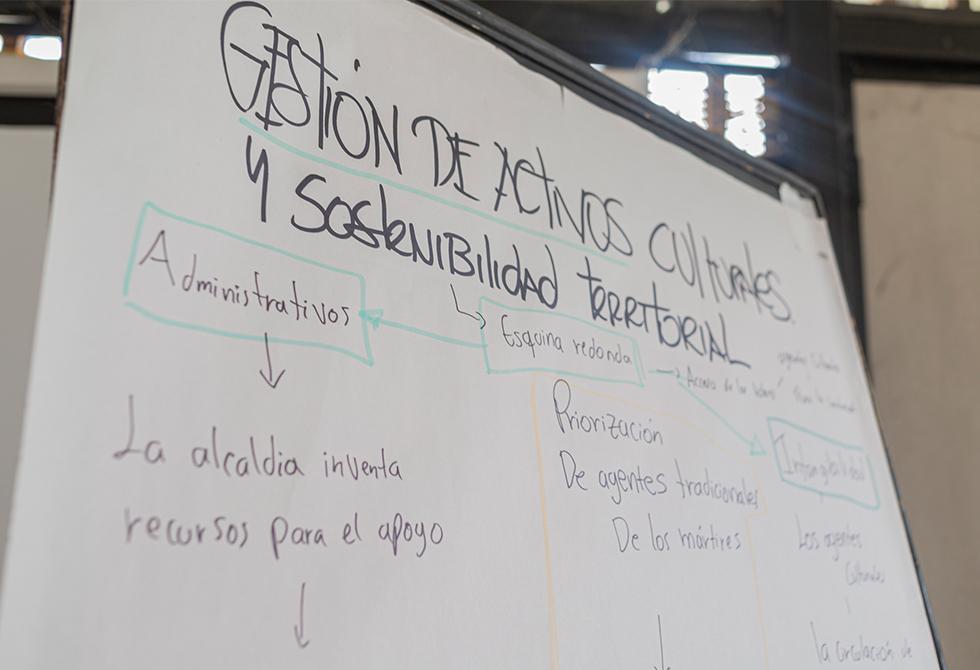 GEStIÓN DE ACtIVOS CUltURAlES.
Y SostENIBIlIDAD tERRItORIAL
Administrativos
Esquina redonda
La alcaldia inventa
recursos para el apoyo
Priorización
De agentes tradicionales
De los mártires
Acceso de los
Intangibilidad
Los agentes
Culturales
la circulación de